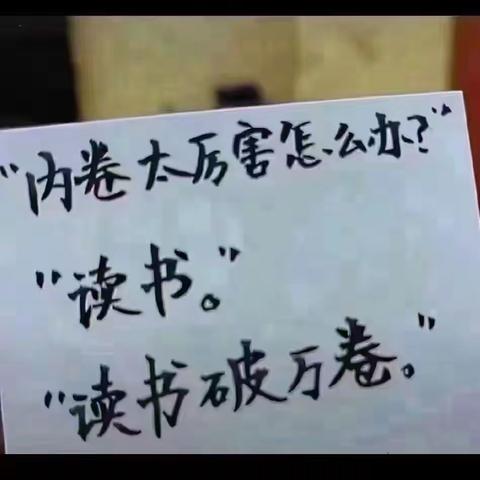 “内卷太厉害怎么办？”
“读书。”
“读书破万卷。”